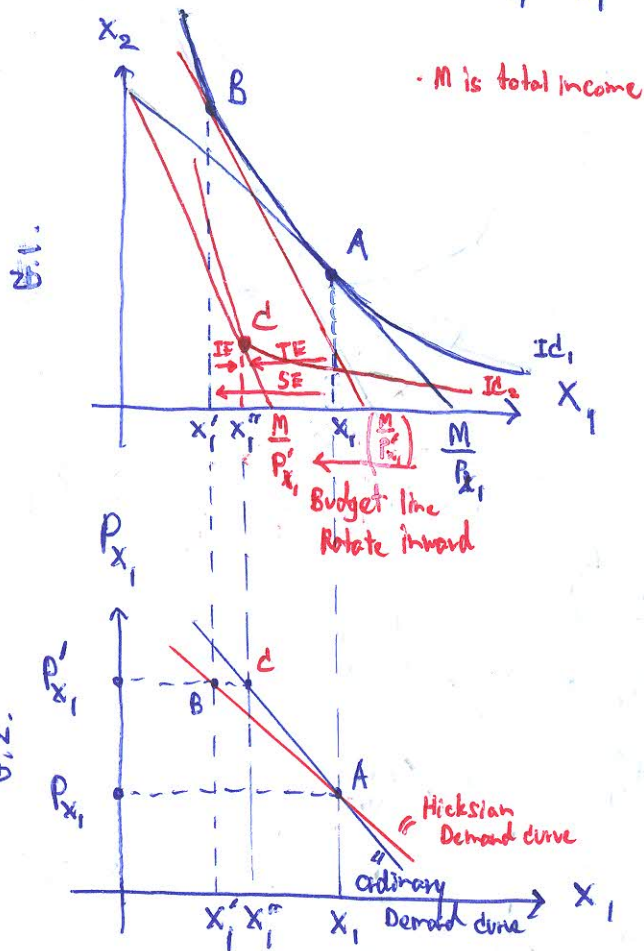 X₂
B
· M is total income
A
C
IE
TE
SE
Id₁
Id₂
X₁
x₁' x₁'' M/P'x₁ x₁ (M/P'x₁) M/Px₁
Budget line
Rotate inward
Px₁
P'x₁
C
B
Px₁
A
Hicksian
Demand curve
ordinary
Demand curve
X₁' X₁'' X₁
X₁